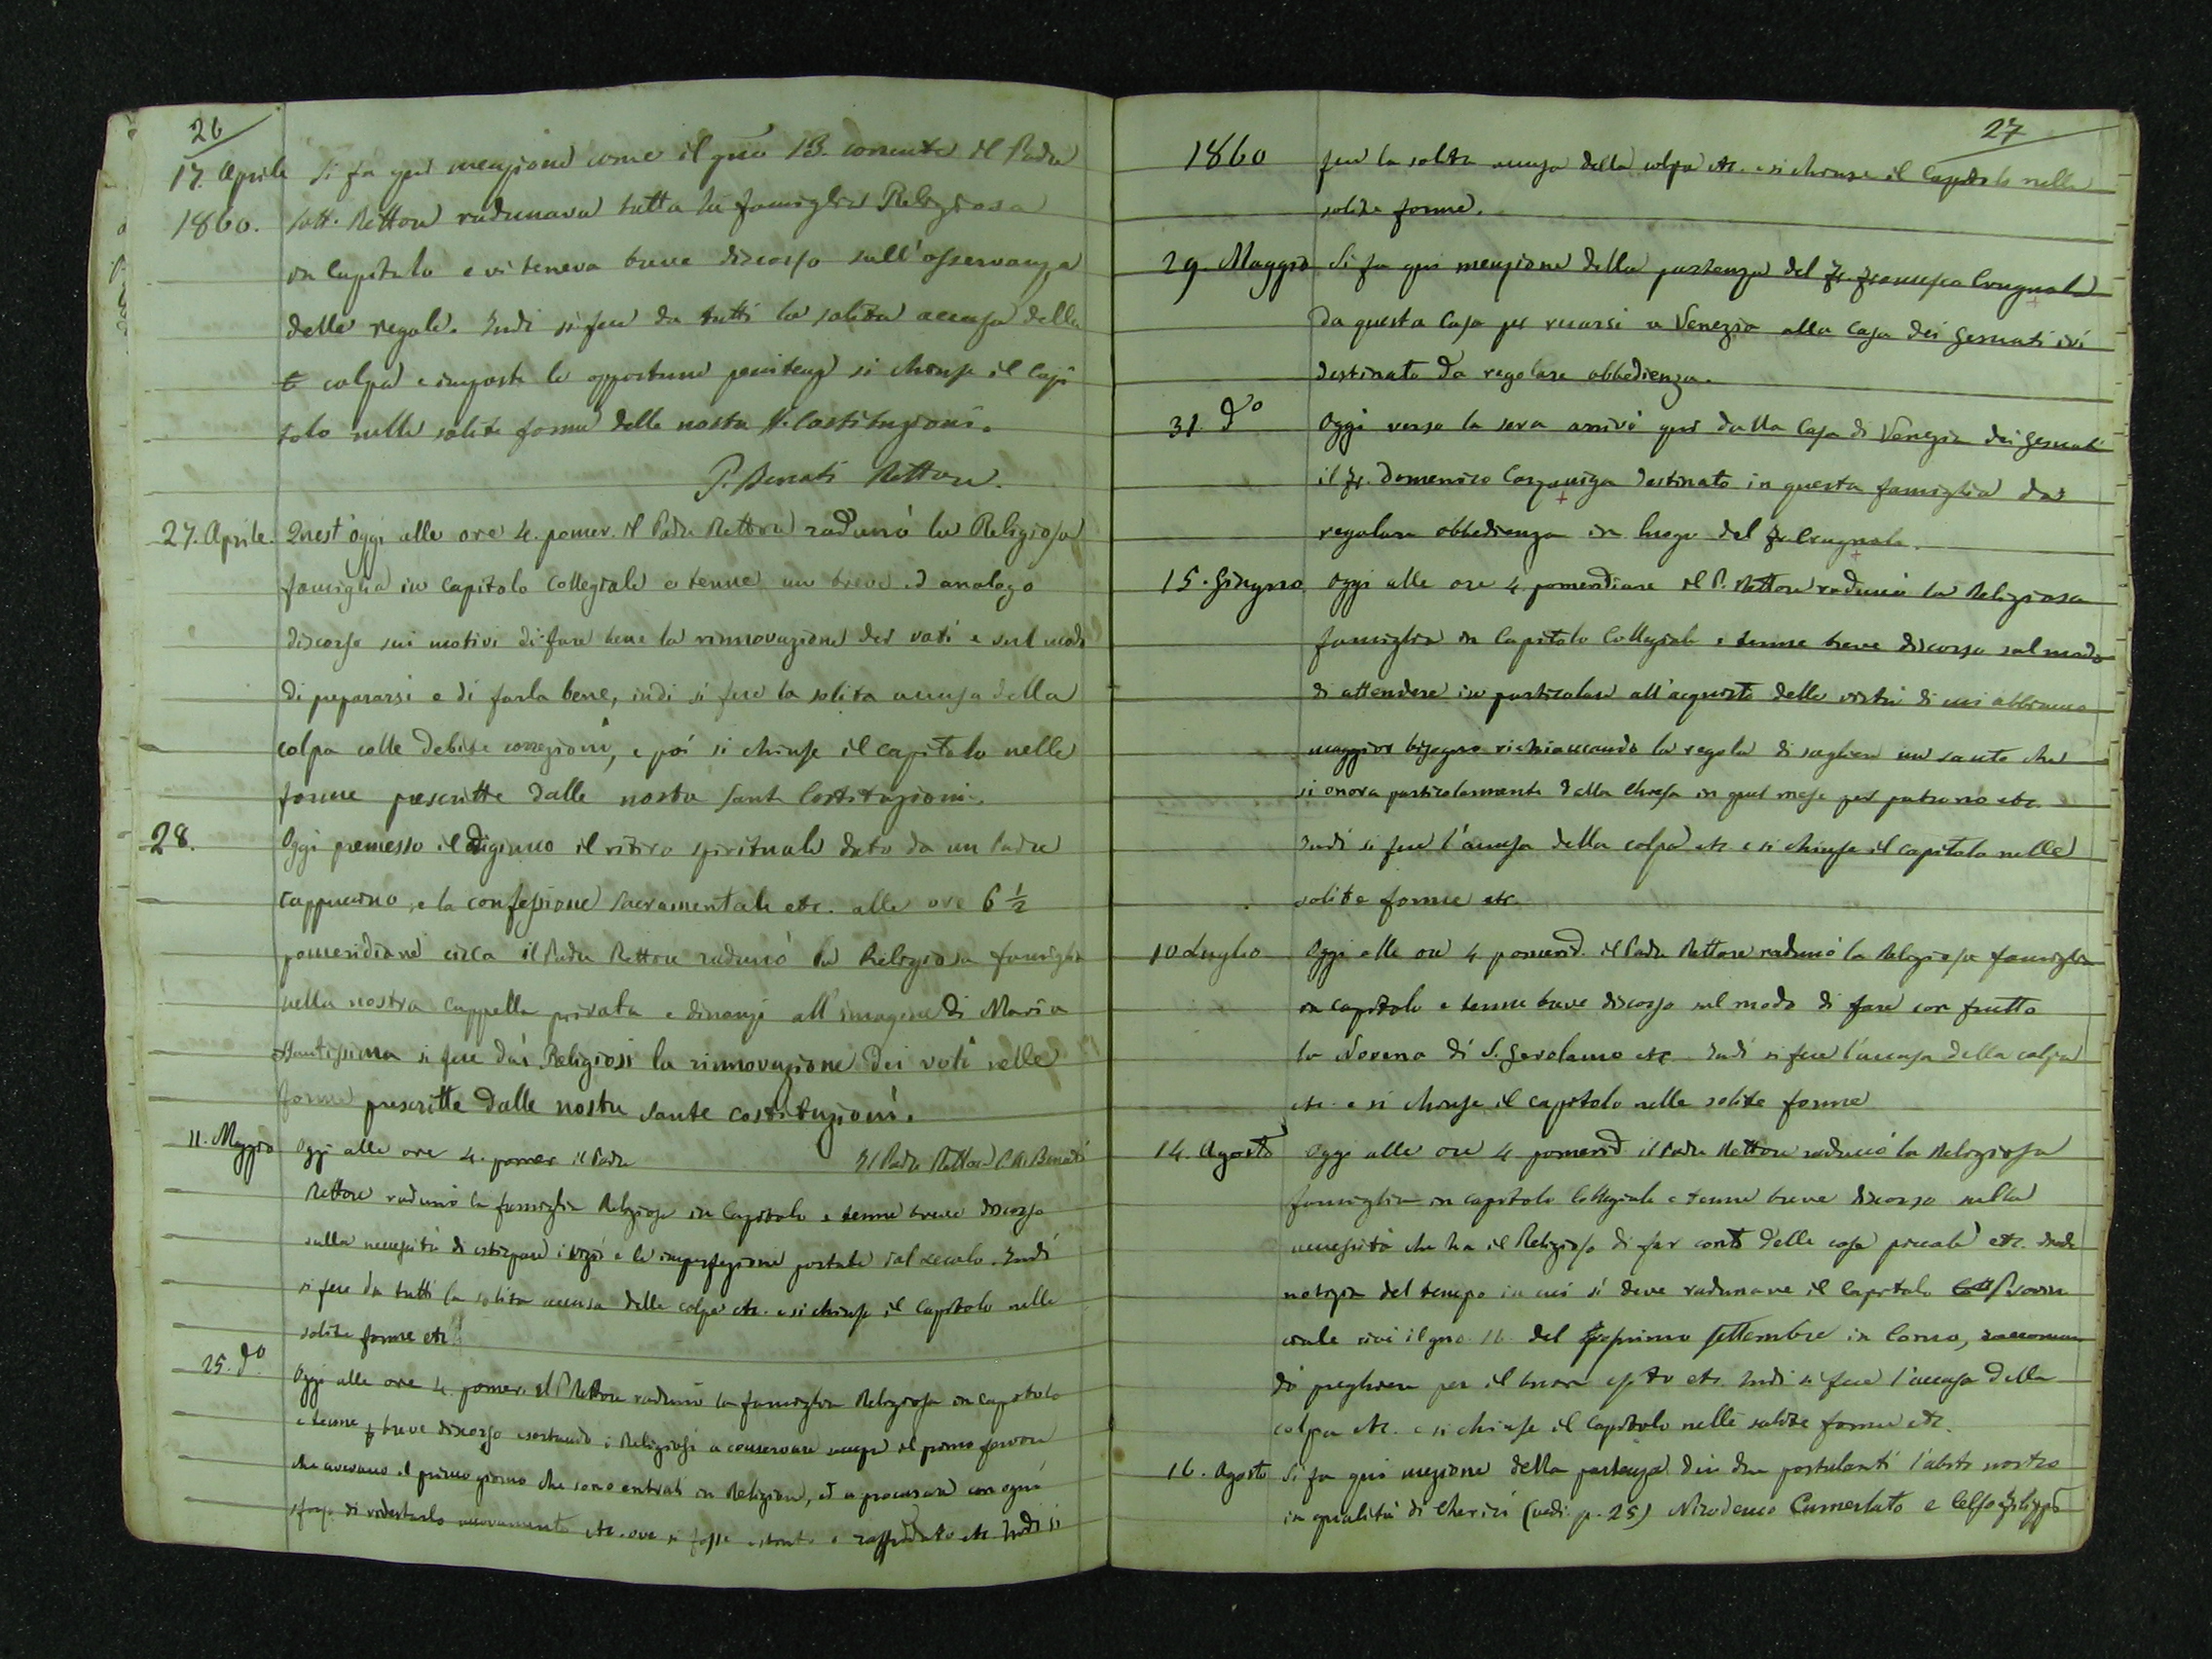 26
17. Aprile Si fa quì menzione come il gno 13. corrente il Padre
1860. sott. Rettore radunava tutta la famiglia Religiosa
in Capitolo e vi teneva breve discorso sull'osservanza
delle regole. Indi si fece da tutti la solita accusa della
colpa e imposte le opportune penitenze si chiuse il Capi
tolo nelle solite forme delle nostre Costituzioni.
P. Benati Rettore.
27. Aprile. Quest'oggi alle ore 4. pomer. il Padre Rettore radunò la Religiosa
famiglia in Capitolo Collegiale e tenne un breve ed analogo
discorso sui motivi di fare bene la rinnovazione dei voti e sul modo
di prepararsi e di farla bene, indi si fece la solita accusa della
colpa colle debite correzioni, e poi si chiuse il capitolo nelle
forme prescritte dalle nostre Sante Costituzioni.
28. Oggi premesso il digiuno il ritiro spirituale dato da un Padre
Cappuccino, e la confessione Sacramentale etc. alle ore 6 ½
pomeridiane circa il Padre Rettore radunò la Religiosa famiglia
nella nostra Cappella privata e dinanzi all'imagine di Maria
Santissima si fece dai Religiosi la rinnovazione dei voti nelle
forme prescritte dalle nostre sante costituzioni.
Il Padre Rettore Benati
11. Maggio Oggi alle ore 4. pomer. il Padre
Rettore radunò la famiglia Religiosa in Capitolo e tenne breve discorso
sulla necessità di estirpare i vizi e le imperfezioni portate dal secolo. Indi
si fece da tutti la solita accusa delle colpe etc. e si chiuse il Capitolo nelle
solite forme etc.
25. do. Oggi alle ore 4. pomer. il P. Rettore radunò la famiglia Religiosa in Capitolo
e tenne breve discorso esortando i Religiosi a conservare sempre il primo fervore
che avevano il primo giorno che sono entrati in Religione, ed a procurare con ogni
sforzo di ridestarlo nuovamente etc. ove si fosse raffreddato etc. Indi si
27
1860 fece la solita accusa della colpa etc. e si chiuse il Capitolo nelle
solite forme.
29. Maggio Si fa qui menzione della partenza del Fr. Francesco Crugnola
da questa Casa per recarsi a Venezia alla Casa dei Gesuati ivi
destinato da regolare obbedienza.
31. do Oggi verso la sera arrivò qui dalla Casa di Venezia dei Gesuati
il Fr. Domenico Cazzaniga destinato in questa famiglia da
regolare obbedienza in luogo del Fr. Crugnola.
15. Giugno Oggi alle ore 4 pomeridiane il P. Rettore radunò la Religiosa
famiglia in Capitolo Collegiale e tenne breve discorso sul modo
di attendere in particolare all'acquisto delle virtù di cui abbiamo
maggior bisogno richiamando la regola di scegliere un santo che
si onora particolarmente dalla Chiesa in quel mese per patrono etc.
Indi si fece l'accusa della colpa etc e si chiuse il capitolo nelle
solite forme etc.
10 Luglio Oggi alle ore 4 pomerid. il Padre Rettore radunò la Religiosa famiglia
in capitolo e tenne breve discorso sul modo di fare con frutto
la Novena di S. Gerolamo etc. Indi si fece l'accusa della colpa
etc. e si chiuse il capitolo nelle solite forme
14. Agosto Oggi alle ore 4 pomerid il Padre Rettore radunò la Religiosa
famiglia in capitolo Collegiale e tenne breve discorso sulla
necessità che ha il Religioso di far conto delle cose piccole etc. diede
notizia del tempo in cui si deve radunare il Capitolo Provin
ciale cioè il gno. 16 del prossimo Settembre in Como, raccoman
dò preghiere per il buon esito etc. Indi si fece l'accusa della
colpa etc. e si chiuse il Capitolo nelle solite forme etc.
16. Agosto Si fa qui menzione della partenza dei due postulanti l'abito nostro
in qualità di Cherici (vedi p. 25) Nicodemo Cumerlato e Celso Filippo